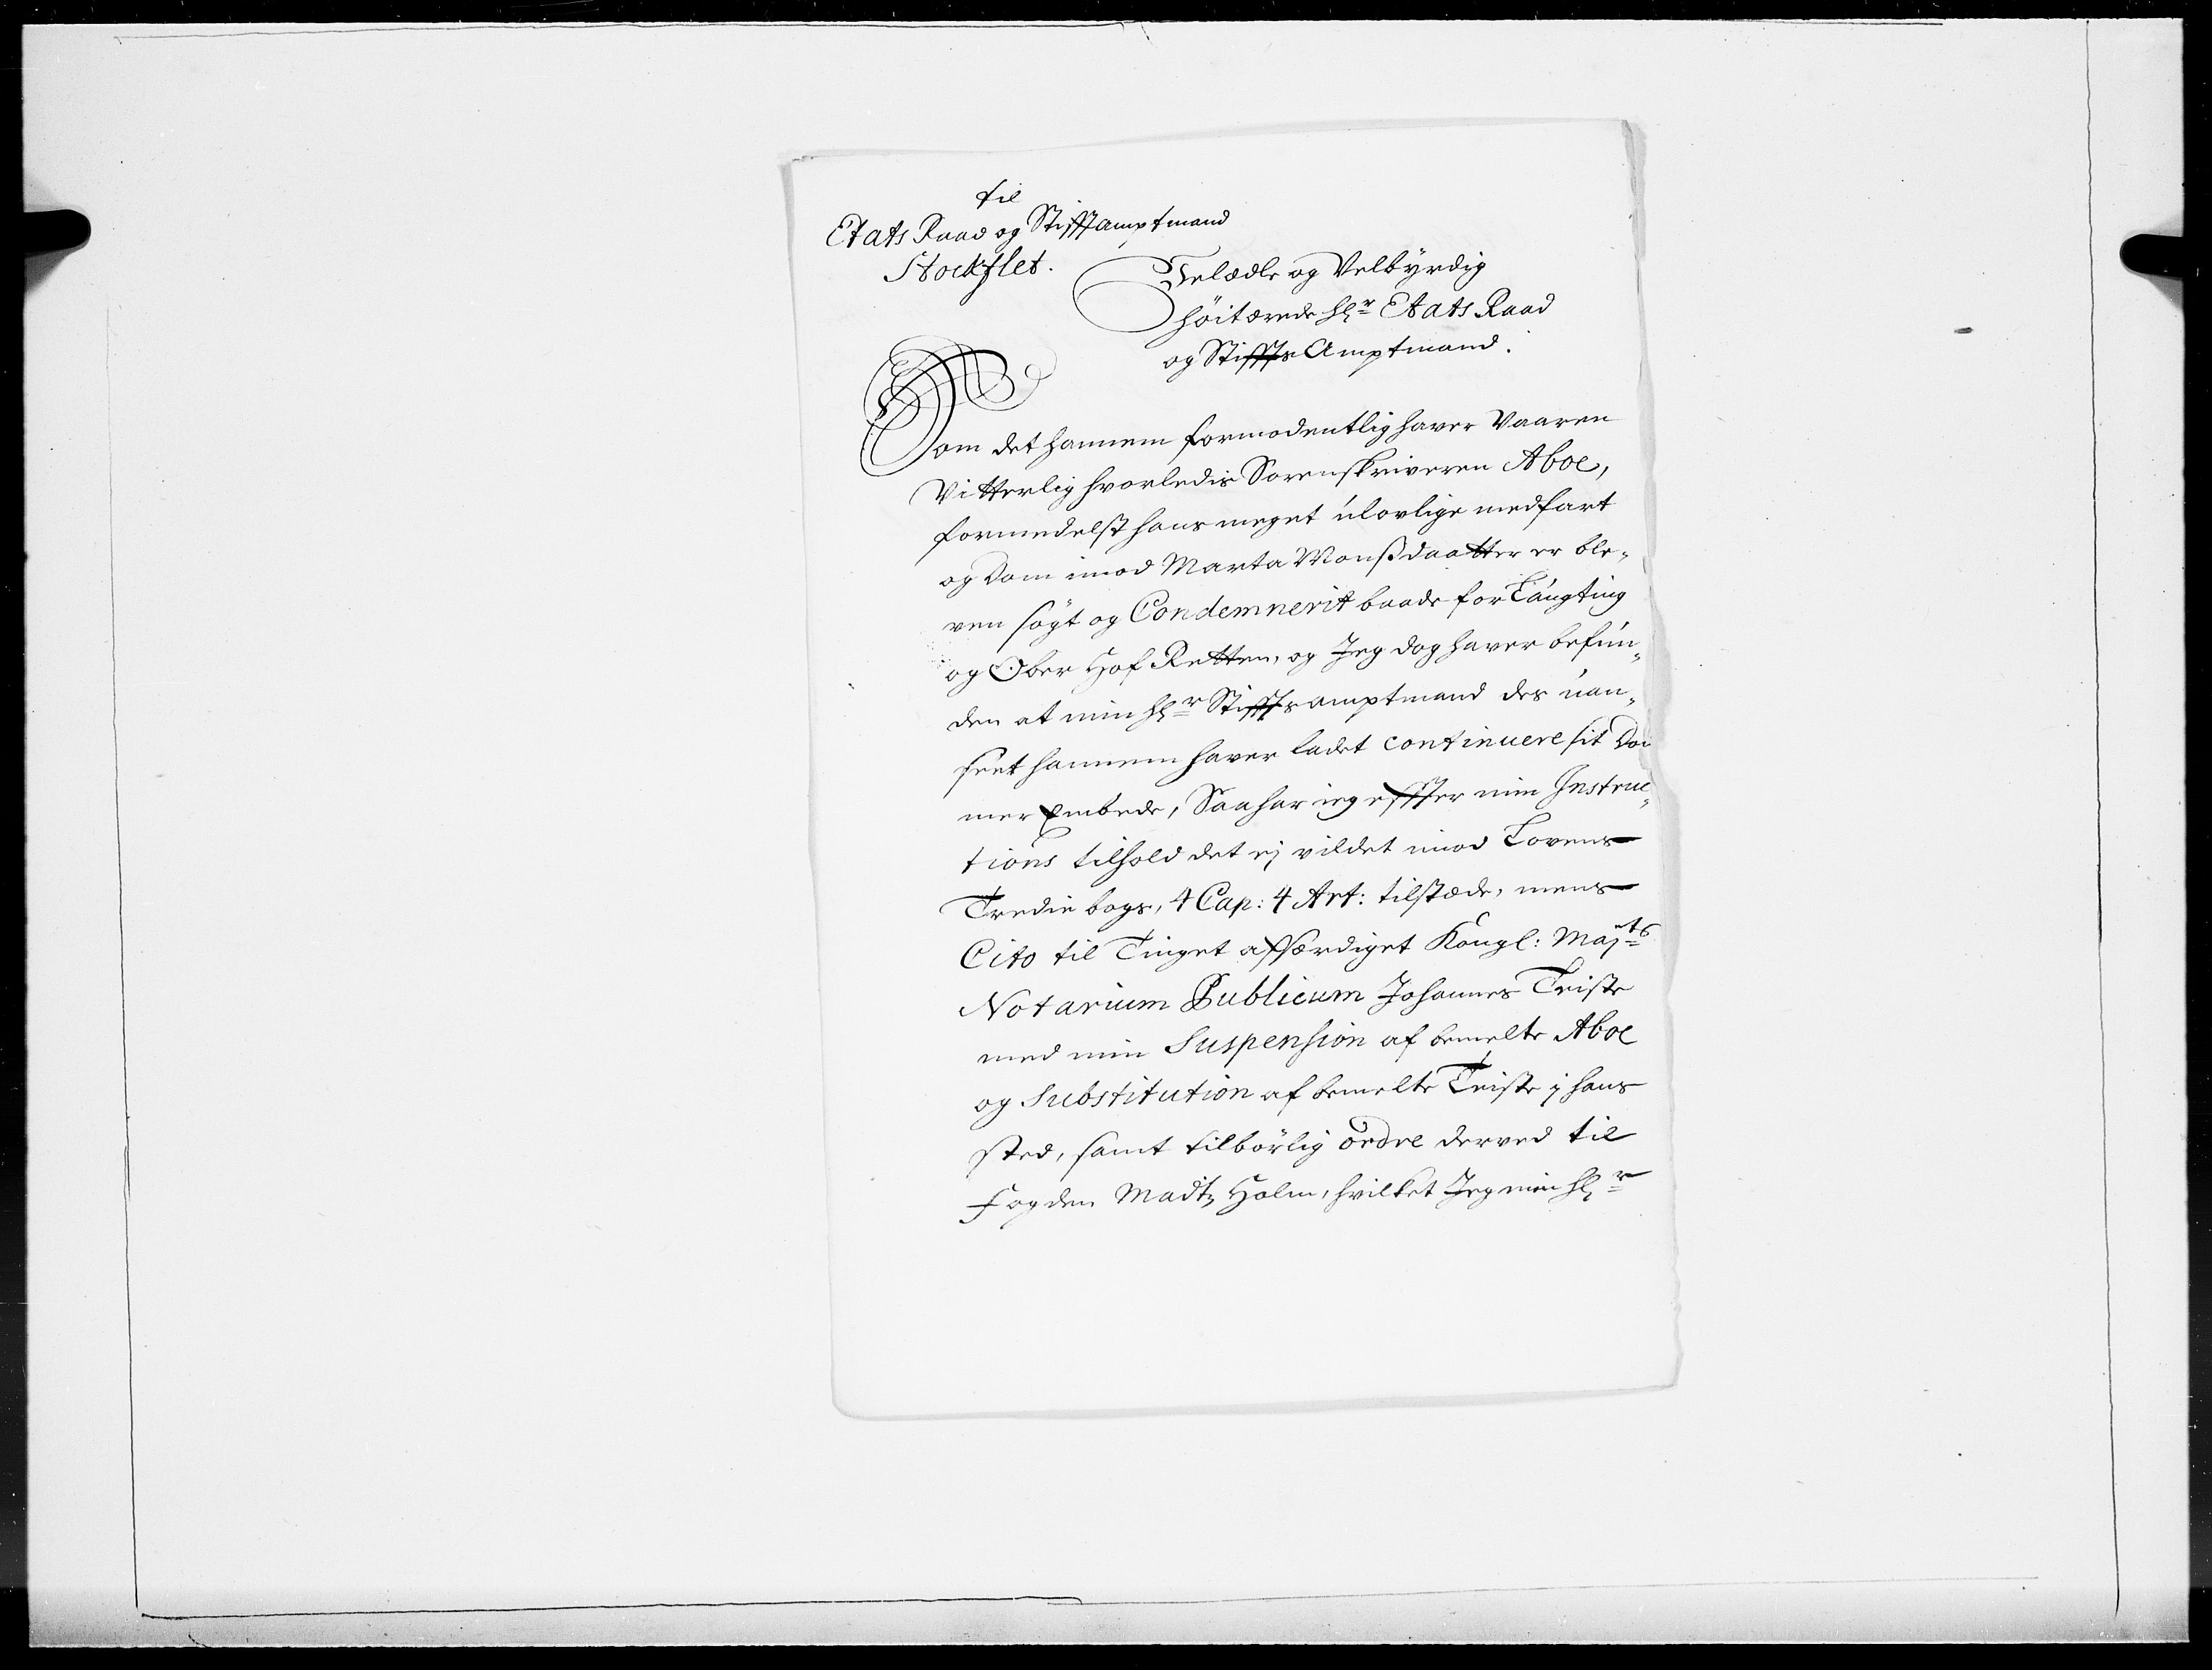 til
Etats Raad og Stifftamptmand
Stockflet.
Velædle og Velbÿrdig
höitærede Hr Etats Raad
og Stiffts Amptmand.
Som det hannem formodentlig haver Vaaren
Vitterlig hvorledis Sorenskriveren Aboe,
formedelst hans meget ulovlige medfart
og Dom imod Marta Monsdaatter er ble-
ven søgt og Condemnerit baade for Laugting
og Ober Hof Retten, og Jeg dog haver befun-
den at min Hr Stiffts amptmand des uan-
seet hannem haver ladet continuere sit Dom
mer Embede, Saa har ieg effter min Instruc-
tions tilhold det ej vildet imod Lovens
Tredie bogs, 4 Cap: 4 Art: tilstæde, mens
Cito til Tinget affærdiget Kongl: Majts
Notarium Publicum Johannes Teiste
med min Suspension af bemelte Aboe
og Substitution af bemelte Teiste j hans
sted, samt tilbørlig ordre derved til
Fogden Madtz Holm, hvilket Jeg min Hr